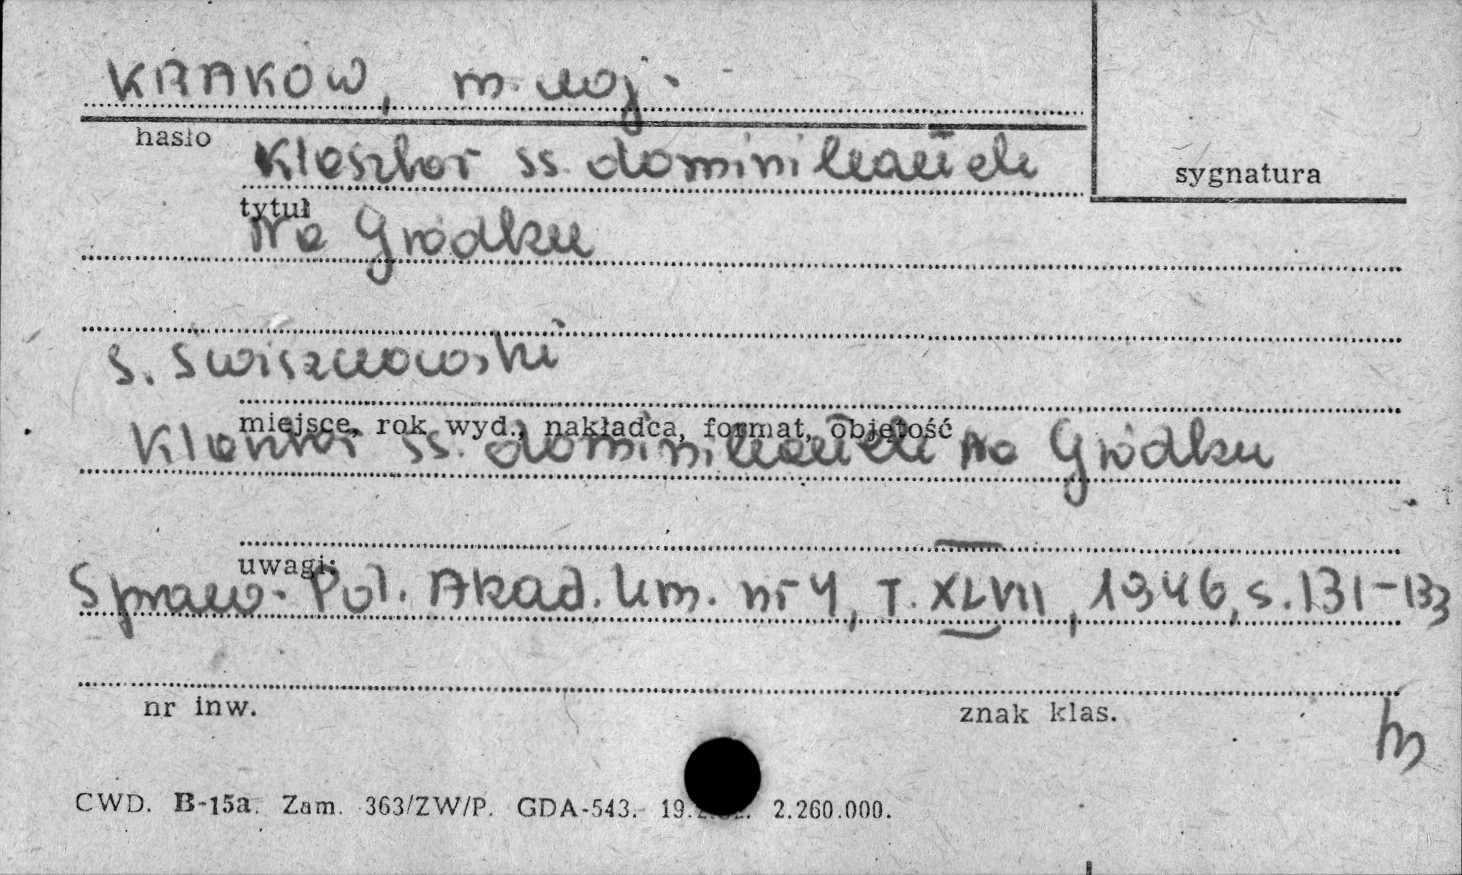 KRAKÓW, m. woj.
hasło
Klasztor ss. dominikanek
sygnatura
tytuł
Na Gródku
S. Świszczowski
miejsce, rok wyd., nakładca, format, objętość
Klasztor ss. dominikanek na Gródku
uwagi:
Spraw. Pol. Akad. Um. nr 4, T. XLVII, 1946, s. 131-133
nr inw.
znak klas.
CWD. B-15a. Zam. 363/ZW/P. GDA-543. 2.260.000.